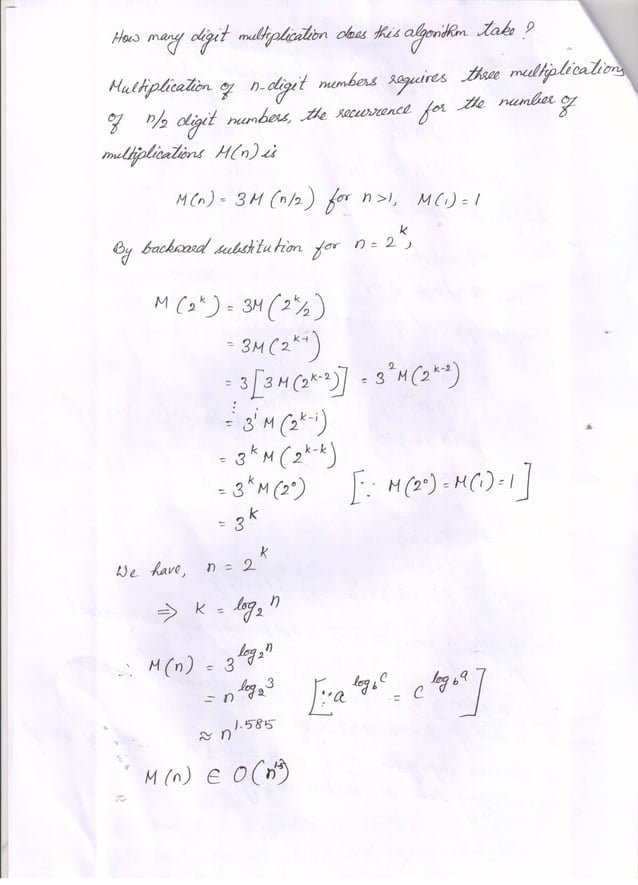 How many digit multiplication does this algorithm take ?
Multiplication of n-digit numbers requires three multiplications
of n/2 digit numbers, the recurrence for the number of
multiplications M(n) is
M(n) = 3M (n/2) for n >1, M(1) = 1
By backward substitution for n = 2^k,
M (2^k) = 3M (2^k/2)
= 3M (2^{k-1})
= 3 [3M (2^{k-2})] = 3^2 M (2^{k-2})
⋮
= 3^i M (2^{k-i})
= 3^k M (2^{k-k})
= 3^k M (2^0) [∵ M(2^0) = M(1) = 1]
= 3^k
We have, n = 2^k
⇒ k = log_2 n
∴ M(n) = 3^{log_2 n}
= n^{log_2 3} [∵ a^{log_b c} = c^{log_b a}]
≈ n^{1.585}
M(n) ∈ O(